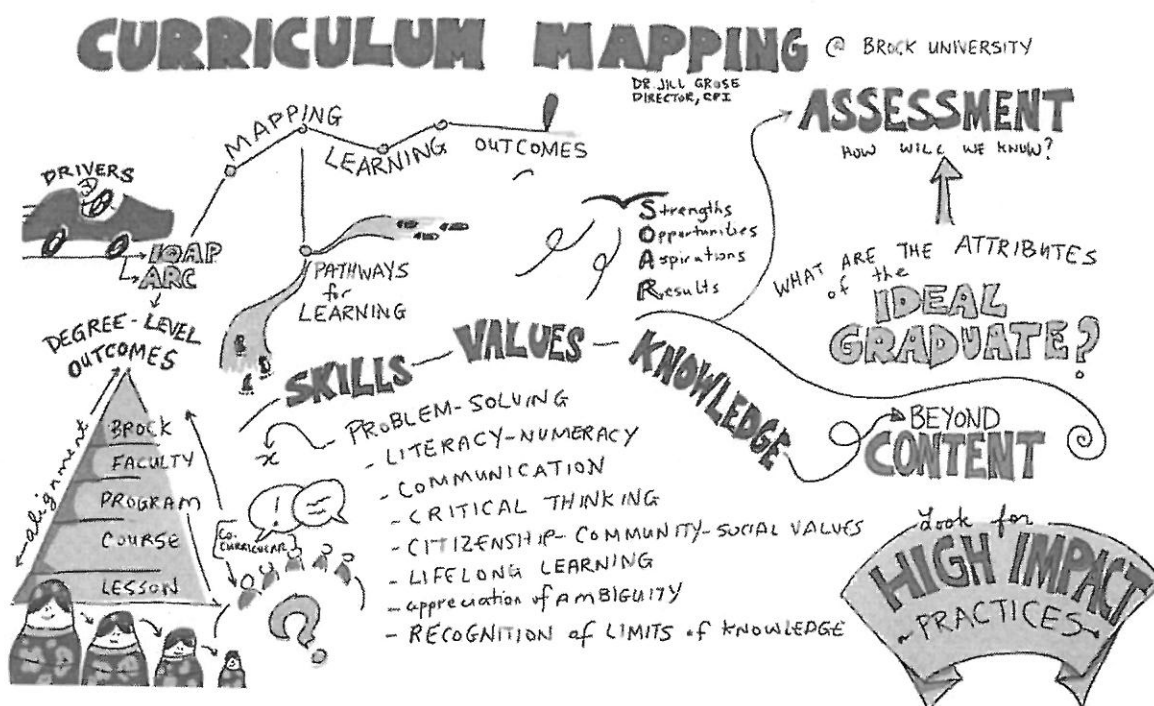 CURRICULUM MAPPING @ BROCK UNIVERSITY
DR. JILL GROSE
DIRECTOR, CPI
MAPPING
LEARNING
OUTCOMES
DRIVERS
IQAP
ARC
PATHWAYS
for
LEARNING
Strengths
Opportunities
Aspirations
Results
ASSESSMENT
HOW WILL WE KNOW?
WHAT ARE THE ATTRIBUTES
of the
IDEAL
GRADUATE?
DEGREE-LEVEL
OUTCOMES
alignment
BROCK
FACULTY
PROGRAM
COURSE
LESSON
CO-
CURRICULAR
!
?
SKILLS - VALUES - KNOWLEDGE
x
PROBLEM-SOLVING
- LITERACY-NUMERACY
- COMMUNICATION
- CRITICAL THINKING
- CITIZENSHIP- COMMUNITY-SOCIAL VALUES
- LIFELONG LEARNING
- appreciation of AMBIGUITY
- RECOGNITION of LIMITS of KNOWLEDGE
BEYOND
CONTENT
Look for
HIGH IMPACT
- PRACTICES -